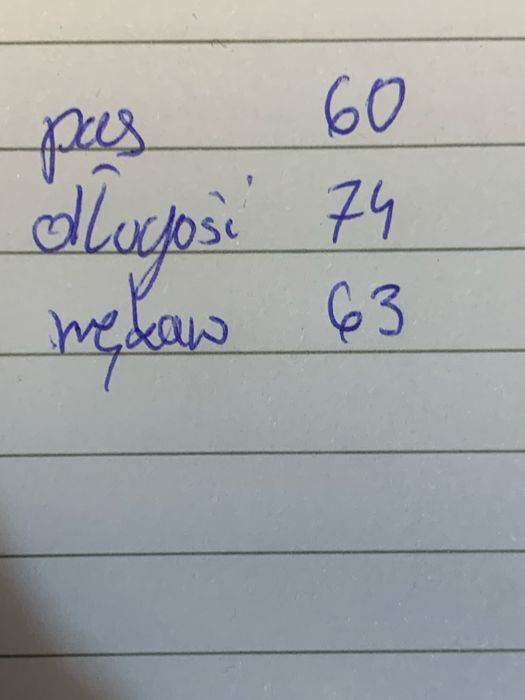 pas 60
długość 74
rękaw 63